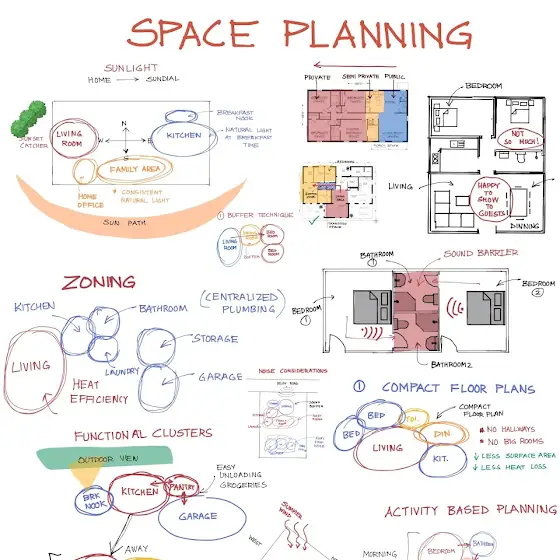 SPACE PLANNING
SUNLIGHT
HOME → SUNDIAL
SUNSET
CATCHER
LIVING
ROOM
N
W
E
S
KITCHEN
BREAKFAST
NOOK
NATURAL LIGHT
AT BREAKFAST
TIME
FAMILY AREA
HOME
OFFICE
CONSISTENT
NATURAL LIGHT
SUN PATH
PRIVATE
SEMI PRIVATE
PUBLIC
① BUFFER TECHNIQUE
LIVING
ROOM
BED
ROOM
BED
ROOM
BUFFER
BEDROOM
NOT
SO MUCH!
LIVING
HAPPY
TO
SHOW
TO
GUESTS!
DINNING
ZONING
KITCHEN
BATHROOM
(CENTRALIZED
PLUMBING)
LIVING
STORAGE
LAUNDRY
HEAT
EFFICIENCY
GARAGE
BATHROOM
①
SOUND BARRIER
BEDROOM
①
BEDROOM
②
BATHROOM 2
NOISE CONSIDERATIONS
① COMPACT FLOOR PLANS
BED
BED
TOI.
COMPACT
FLOOR PLAN
LIVING
DIN.
KIT.
NO HALLWAYS
NO BIG ROOMS
↓ LESS SURFACE AREA
↓ LESS HEAT LOSS
FUNCTIONAL CLUSTERS
OUTDOOR VIEW
BRK
NOOK
KITCHEN
PANTRY
EASY
UNLOADING
GROCERIES
GARAGE
AWAY
SUMMER
WIND
WEST
ACTIVITY BASED PLANNING
MORNING
BEDROOM